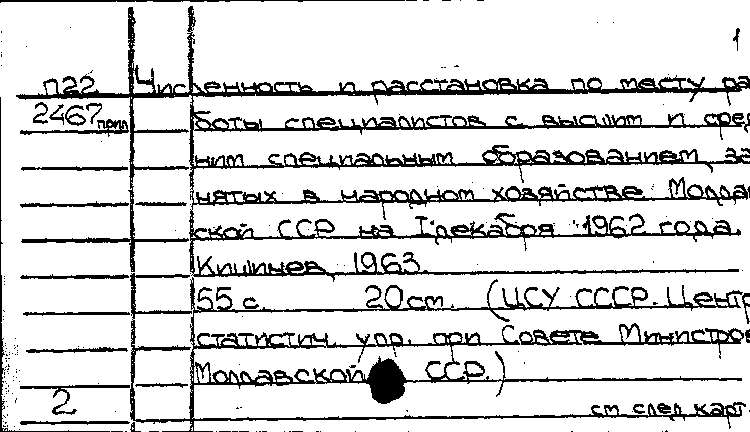 1
п22 Численность и расстановка по месту ра
2467 прил боты специалистов с высшим и сред
ним специальным образованием, за
нятых в народном хозяйстве Молдав
ской ССР на I декабря 1962 года.
Кишинев, 1963.
55 с. 20 см. (ЦСУ СССР. Центр
статистич. упр. при Совете Министров
Молдавской ССР.)
2
см след карт